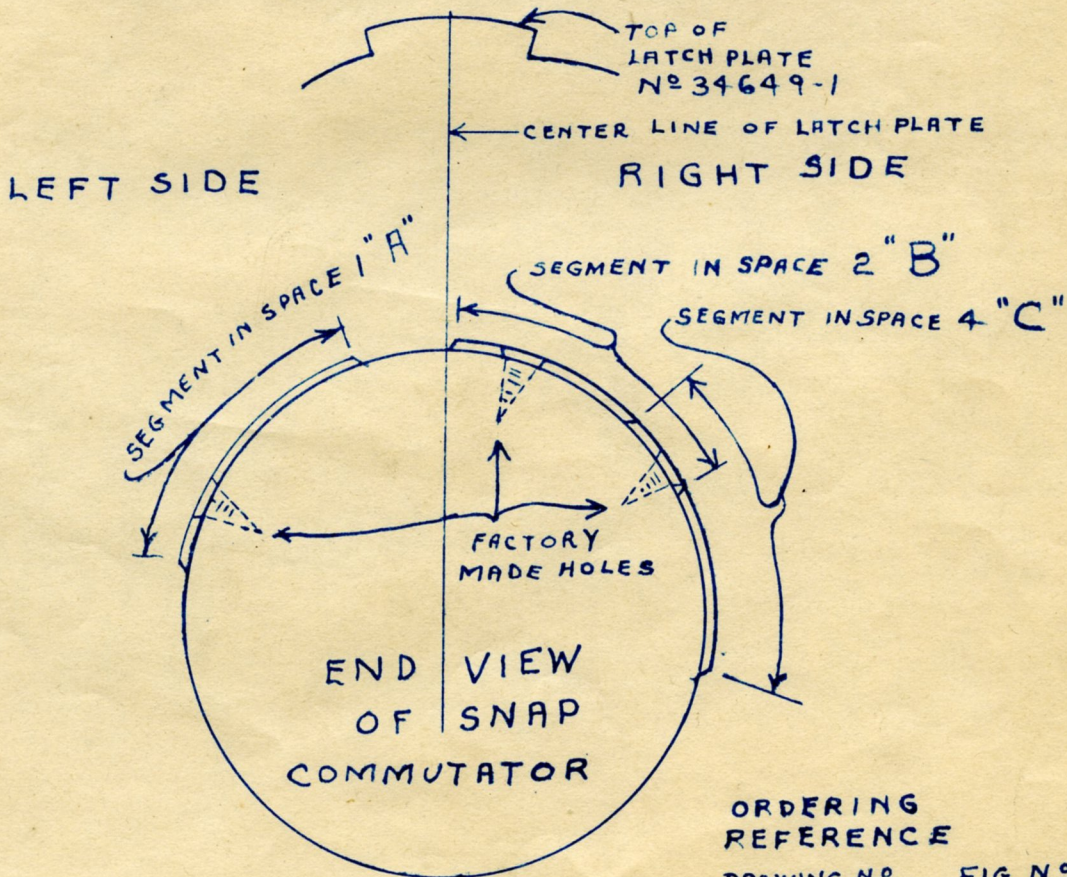 TOP OF
LATCH PLATE
Nº 34649-1
CENTER LINE OF LATCH PLATE
LEFT SIDE
RIGHT SIDE
SEGMENT IN SPACE 1 "A"
SEGMENT IN SPACE 2 "B"
SEGMENT IN SPACE 4 "C"
FACTORY
MADE HOLES
END VIEW
OF SNAP
COMMUTATOR
ORDERING
REFERENCE
DRAWING Nº FIG Nº